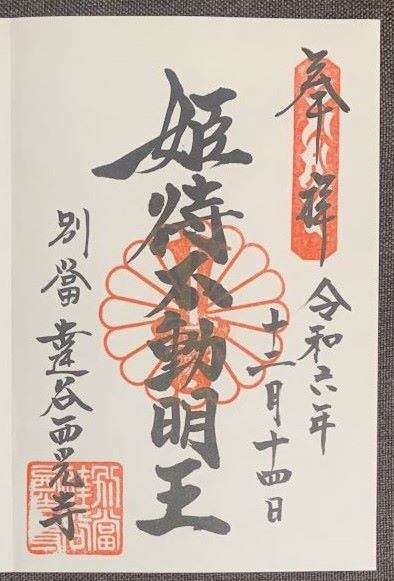 奉拝
令和六年
十二月十四日
姫待不動明王
別當達谷西光寺